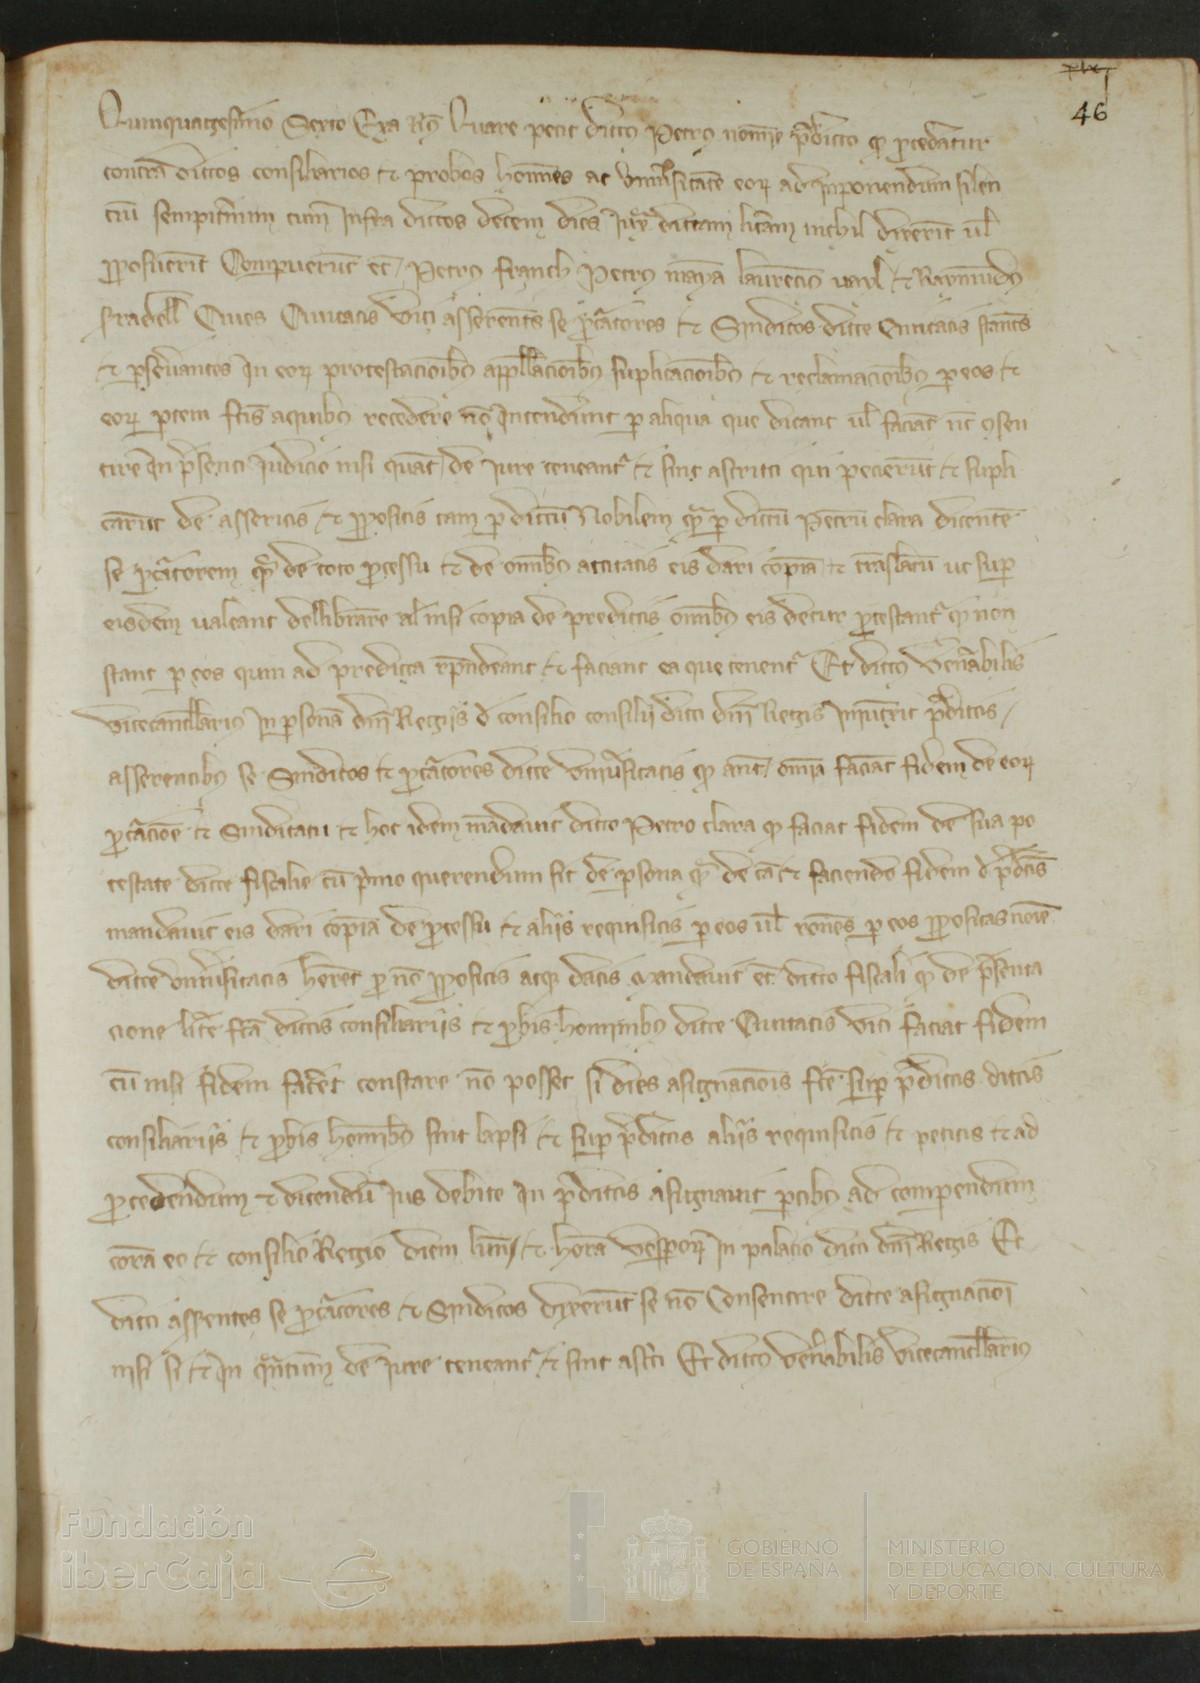 46
Quinquagesimo Sexto Exa Rs Quare petit dictus Petrus nomine predicto quod procedatur
contra dictos consiliarios et probos homines ac universitatem eorum ad imponendum silen
cium sempiternum cum infra dictos decem dies iuxta dictam literam nichil dixerint vel
proposuerint Compuerunt etiam Petrus franch Petrus maya laurencius et Raymundus
fradell Cives Civitatis Vici asserentes se procuratores et Sindicos dicte Civitatis stantes
et perseverantes in eorum protestacionibus appellacionibus suplicacionibus et reclamacionibus per eos et
eorum partem factis a quibus recedere non intendunt per aliqua que dicant vel faciant nec consen
tire in presenti iudicio nisi quantum de iure teneantur et sint astricti qui pecierunt et supli
carunt de assertis et propositis tam per dictum Nobilem quam per dictum Petrum clara dicentem
se procuratorem quam de toto processu et de omnibus actitatis eis dari copiam et translatum ut super
eisdem valeant dellibrare al nisi copia de predictis omnibus eis detur protestantur quod non
stant per eos quin ad predicta respondeant et faciant ea que tenentur Et dictus Venerabilis
vicecancellarius in personam domini Regis de consilio consilii dicti domini Regis iniunxit predictis
asserentibus se Sindicos et procuratores dicte universitatis quod ante omnia faciant fidem de eorum
procuracione et Sindicatu et hoc idem mandavit dicto Petro clara quod faciat fidem de sua po
testate dicte fiscalie cum primo querendum sit de persona quam de causa et faciendo fidem de predictis
mandavit eis dari copiam de processu et aliis requisitis per eos vel raciones per eos propositas nomine
dicte universitatis heret pro non propositis atque datis Mandavit etiam dicto fiscali quod de presenta
cione litere facta dictis consiliariis et probis hominibus dicte Civitatis Vici faciat fidem
cum nisi fidem faceret constare non posset si dies asignacionis facte super predictis dictis
consiliariis et probis hominibus sint lapsi et super predictis aliis requisitis et peticis et ad
procedendum et dicendum ius debite in predictis asignavit partibus ad comparendum
coram eo et consilio Regio diem lune et horam vesperorum in palacio dicti domini Regis Et
dicti asserentes se procuratores et Sindicos dixerunt se non Consentire dicte asignacioni
nisi si et in quantum de iure teneantur et sint astricti Et dictus venerabilis vicecancellarius
Fundación
iberCaja
GOBIERNO
DE ESPAÑA
MINISTERIO
DE EDUCACIÓN, CULTURA
Y DEPORTE